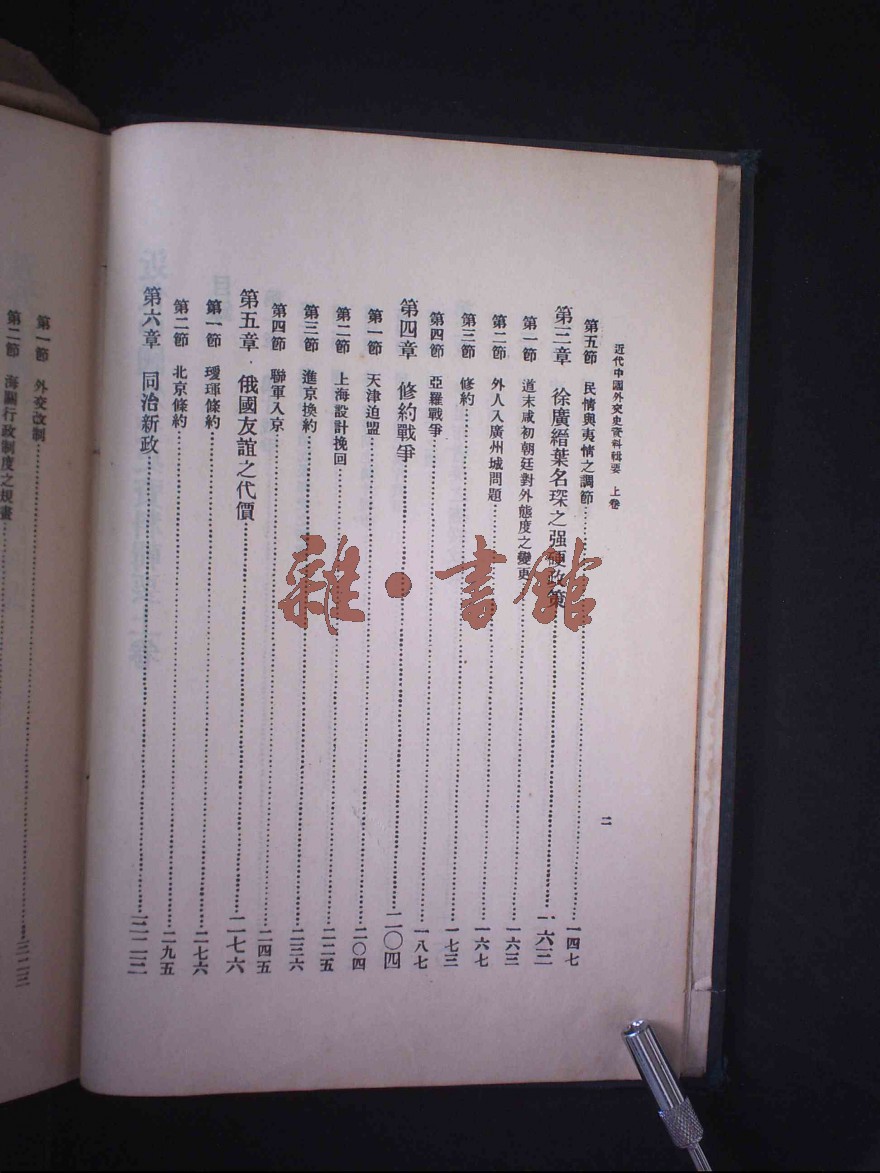 近代中國外交史資料輯要 上卷
二
第五節 民情與夷情之調節……一四七
第三章 徐廣縉葉名琛之强硬政策……一六三
第一節 道末咸初朝廷對外態度之變更……一六三
第二節 外人入廣州城問題……一六七
第三節 修約……一七三
第四節 亞羅戰爭……一八七
第四章 修約戰爭……二〇四
第一節 天津迫盟……二〇四
第二節 上海設計挽回……二二五
第三節 進京換約……二三六
第四節 聯軍入京……二四五
第五章 俄國友誼之代價……二七六
第一節 璦琿條約……二七六
第二節 北京條約……二九五
第六章 同治新政……三二三
第一節 外交改制……三二三
第二節 海關行政制度之規畫……
雜·書館